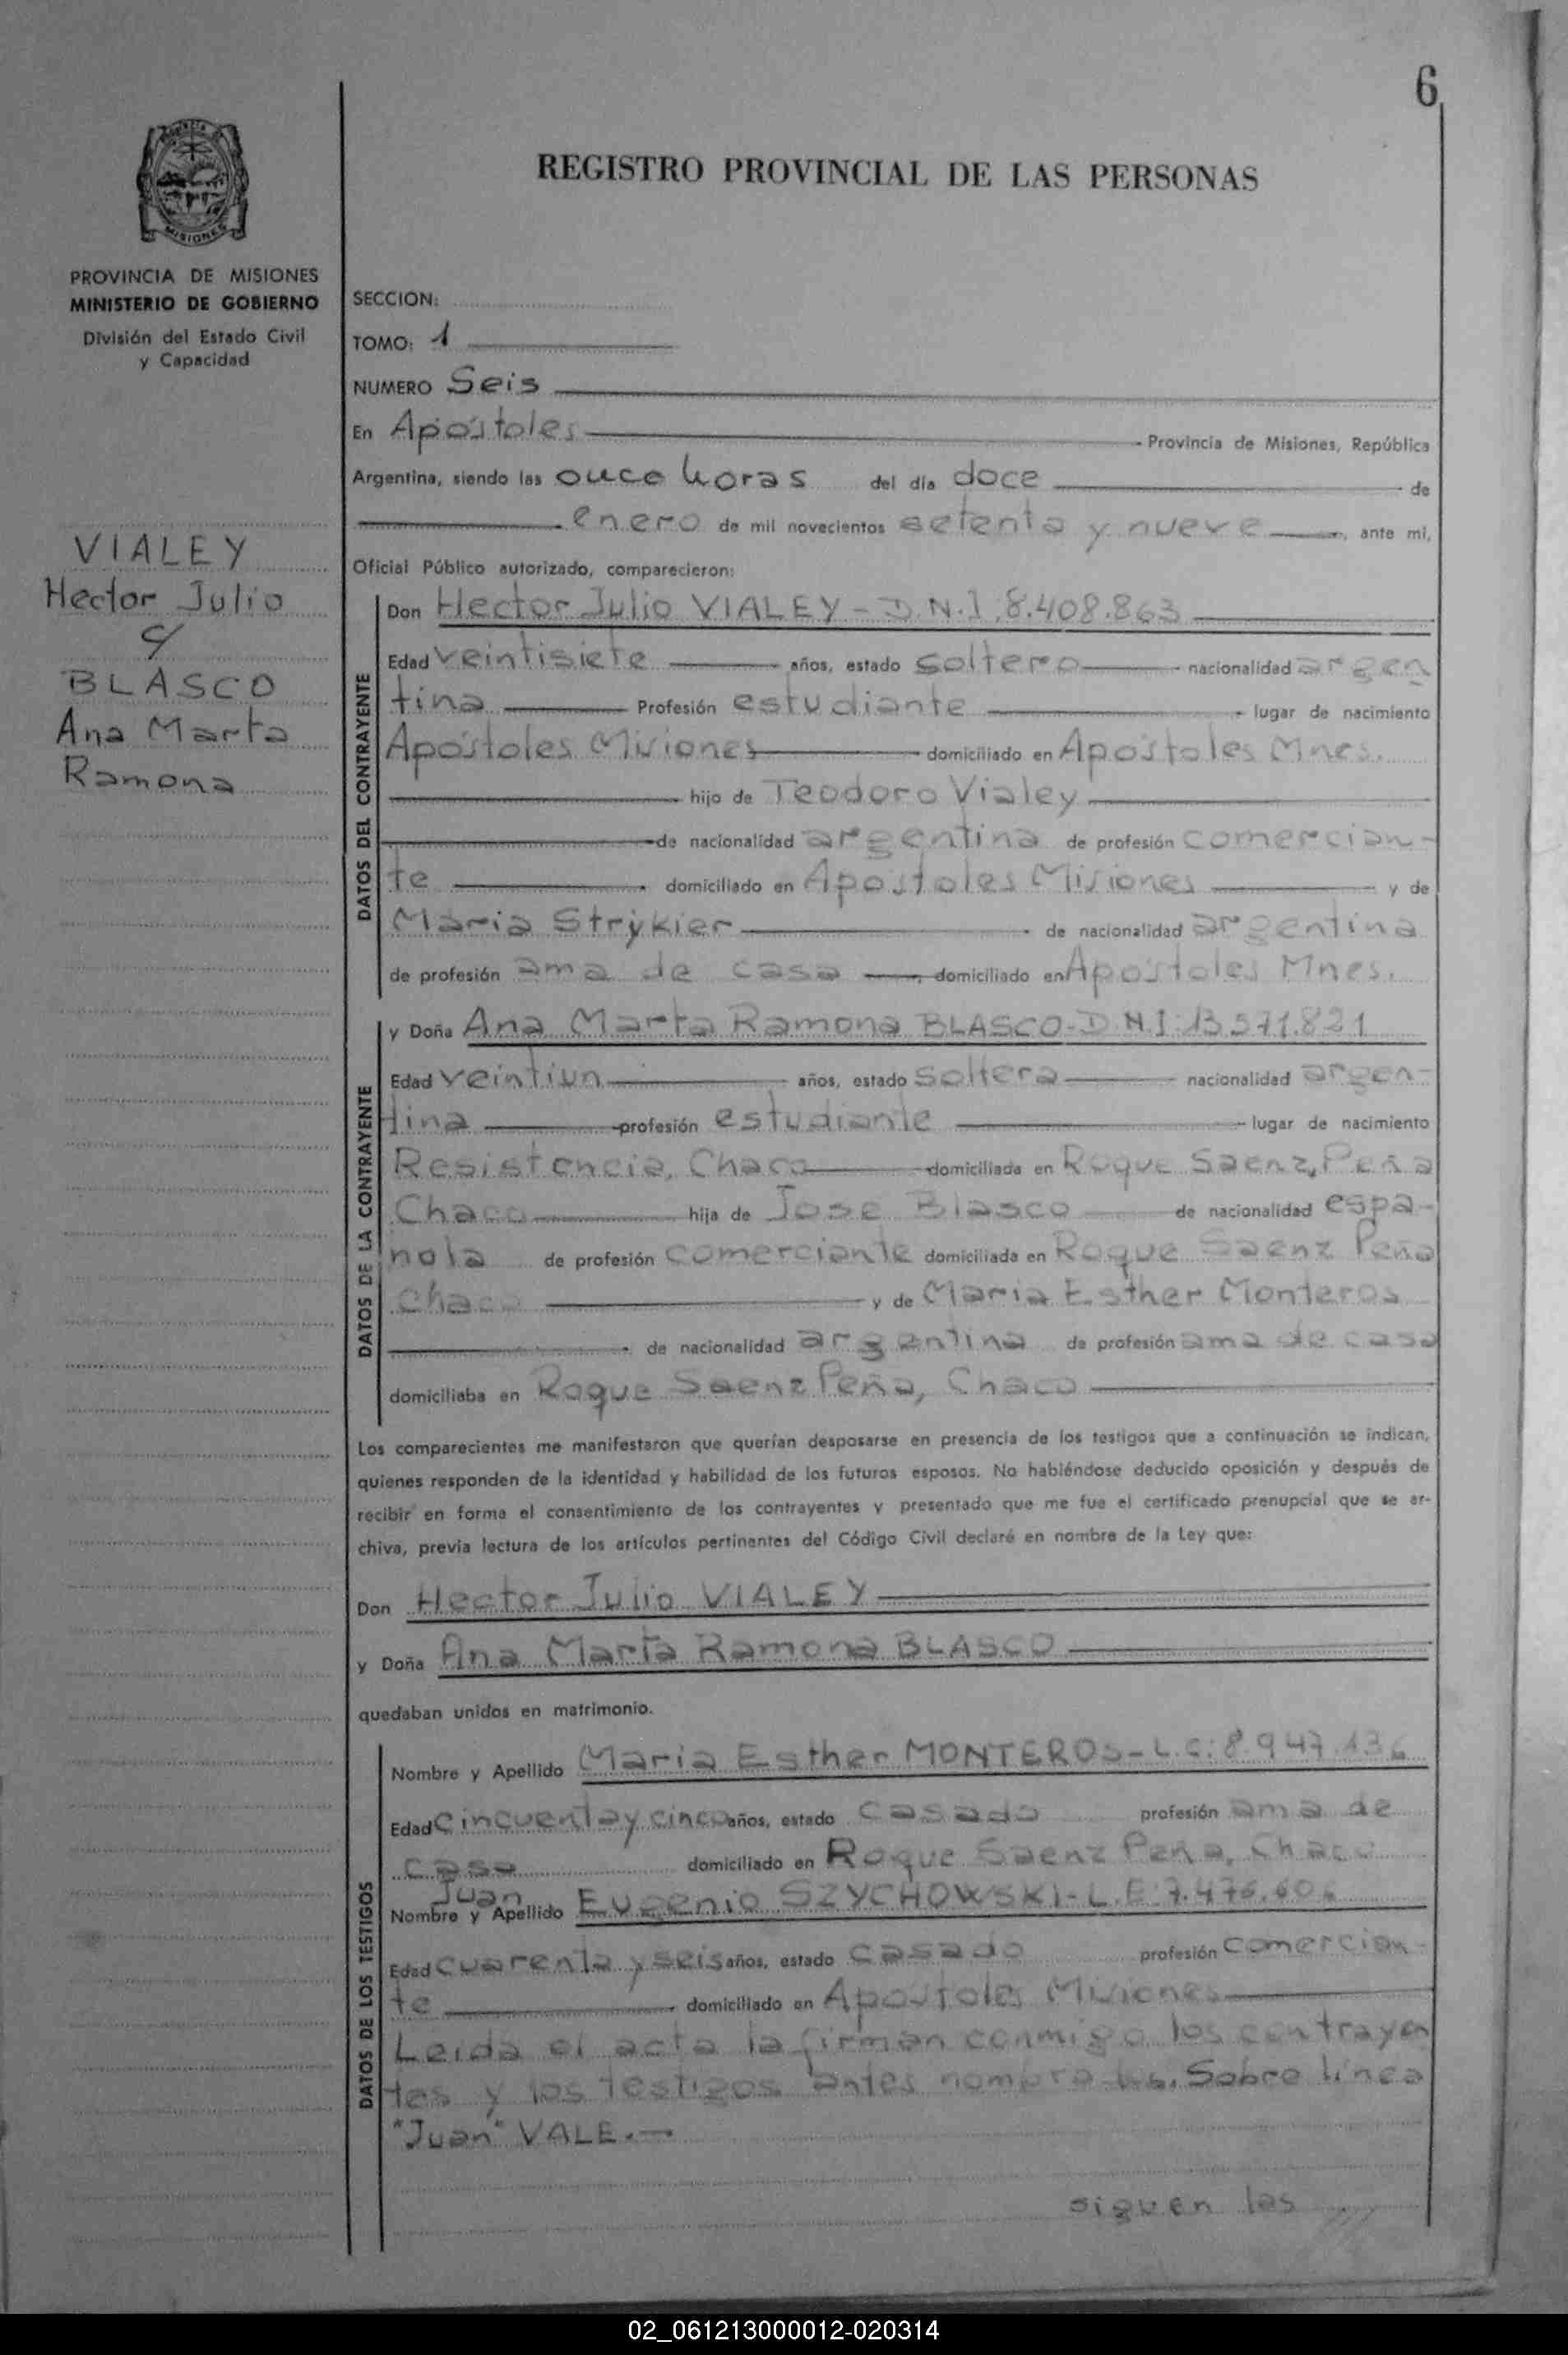 6
MISIONES
PROVINCIA DE MISIONES
MINISTERIO DE GOBIERNO
División del Estado Civil
y Capacidad
VIALEY
Hector Julio
c/
BLASCO
Ana Marta
Ramona
REGISTRO PROVINCIAL DE LAS PERSONAS
SECCION:
TOMO: 1
NUMERO Seis
En Apóstoles - Provincia de Misiones, República
Argentina, siendo las once horas del día doce de
enero de mil novecientos setenta y nueve, ante mi,
Oficial Público autorizado, comparecieron:
DATOS DEL CONTRAYENTE
Don Hector Julio VIALEY - D.N.I. 8.408.863
Edad veintisiete años, estado soltero nacionalidad argen
tina Profesión estudiante lugar de nacimiento
Apóstoles Misiones domiciliado en Apóstoles Mnes.
hijo de Teodoro Vialey
de nacionalidad argentina de profesión comercian-
te domiciliado en Apóstoles Misiones y de
Maria Strykier de nacionalidad argentina
de profesión ama de casa, domiciliado en Apóstoles Mnes.
DATOS DE LA CONTRAYENTE
y Doña Ana Marta Ramona BLASCO - D.N.I. 13.571.821
Edad veintiun años, estado soltera nacionalidad argen-
tina profesión estudiante lugar de nacimiento
Resistencia, Chaco domiciliada en Roque Saenz Peña
Chaco hija de Jose Blasco de nacionalidad espa-
nola de profesión comerciante domiciliada en Roque Saenz Peña
Chaco y de Maria Esther Monteros
de nacionalidad argentina de profesión ama de casa
domiciliaba en Roque Saenz Peña, Chaco
Los comparecientes me manifestaron que querían desposarse en presencia de los testigos que a continuación se indican,
quienes responden de la identidad y habilidad de los futuros esposos. No habiéndose deducido oposición y después de
recibir en forma el consentimiento de los contrayentes y presentado que me fue el certificado prenupcial que se ar-
chiva, previa lectura de los artículos pertinentes del Código Civil declaré en nombre de la Ley que:
Don Hector Julio VIALEY
y Doña Ana Marta Ramona BLASCO
quedaban unidos en matrimonio.
DATOS DE LOS TESTIGOS
Nombre y Apellido Maria Esther MONTEROS - L.C: 8.947.136
Edad cincuenta y cinco años, estado casado profesión ama de
casa domiciliado en Roque Saenz Peña, Chaco
Juan
Nombre y Apellido Eugenio SZYCHOWSKI - L.E 7.476.606
Edad cuarenta y seis años, estado casado profesión comercian-
te domiciliado en Apóstoles Misiones
Leida el acta la firman conmigo los contrayen
tes y los testigos antes nombrados. Sobre línea
"Juan" VALE.-
siguen las
02_061213000012-020314